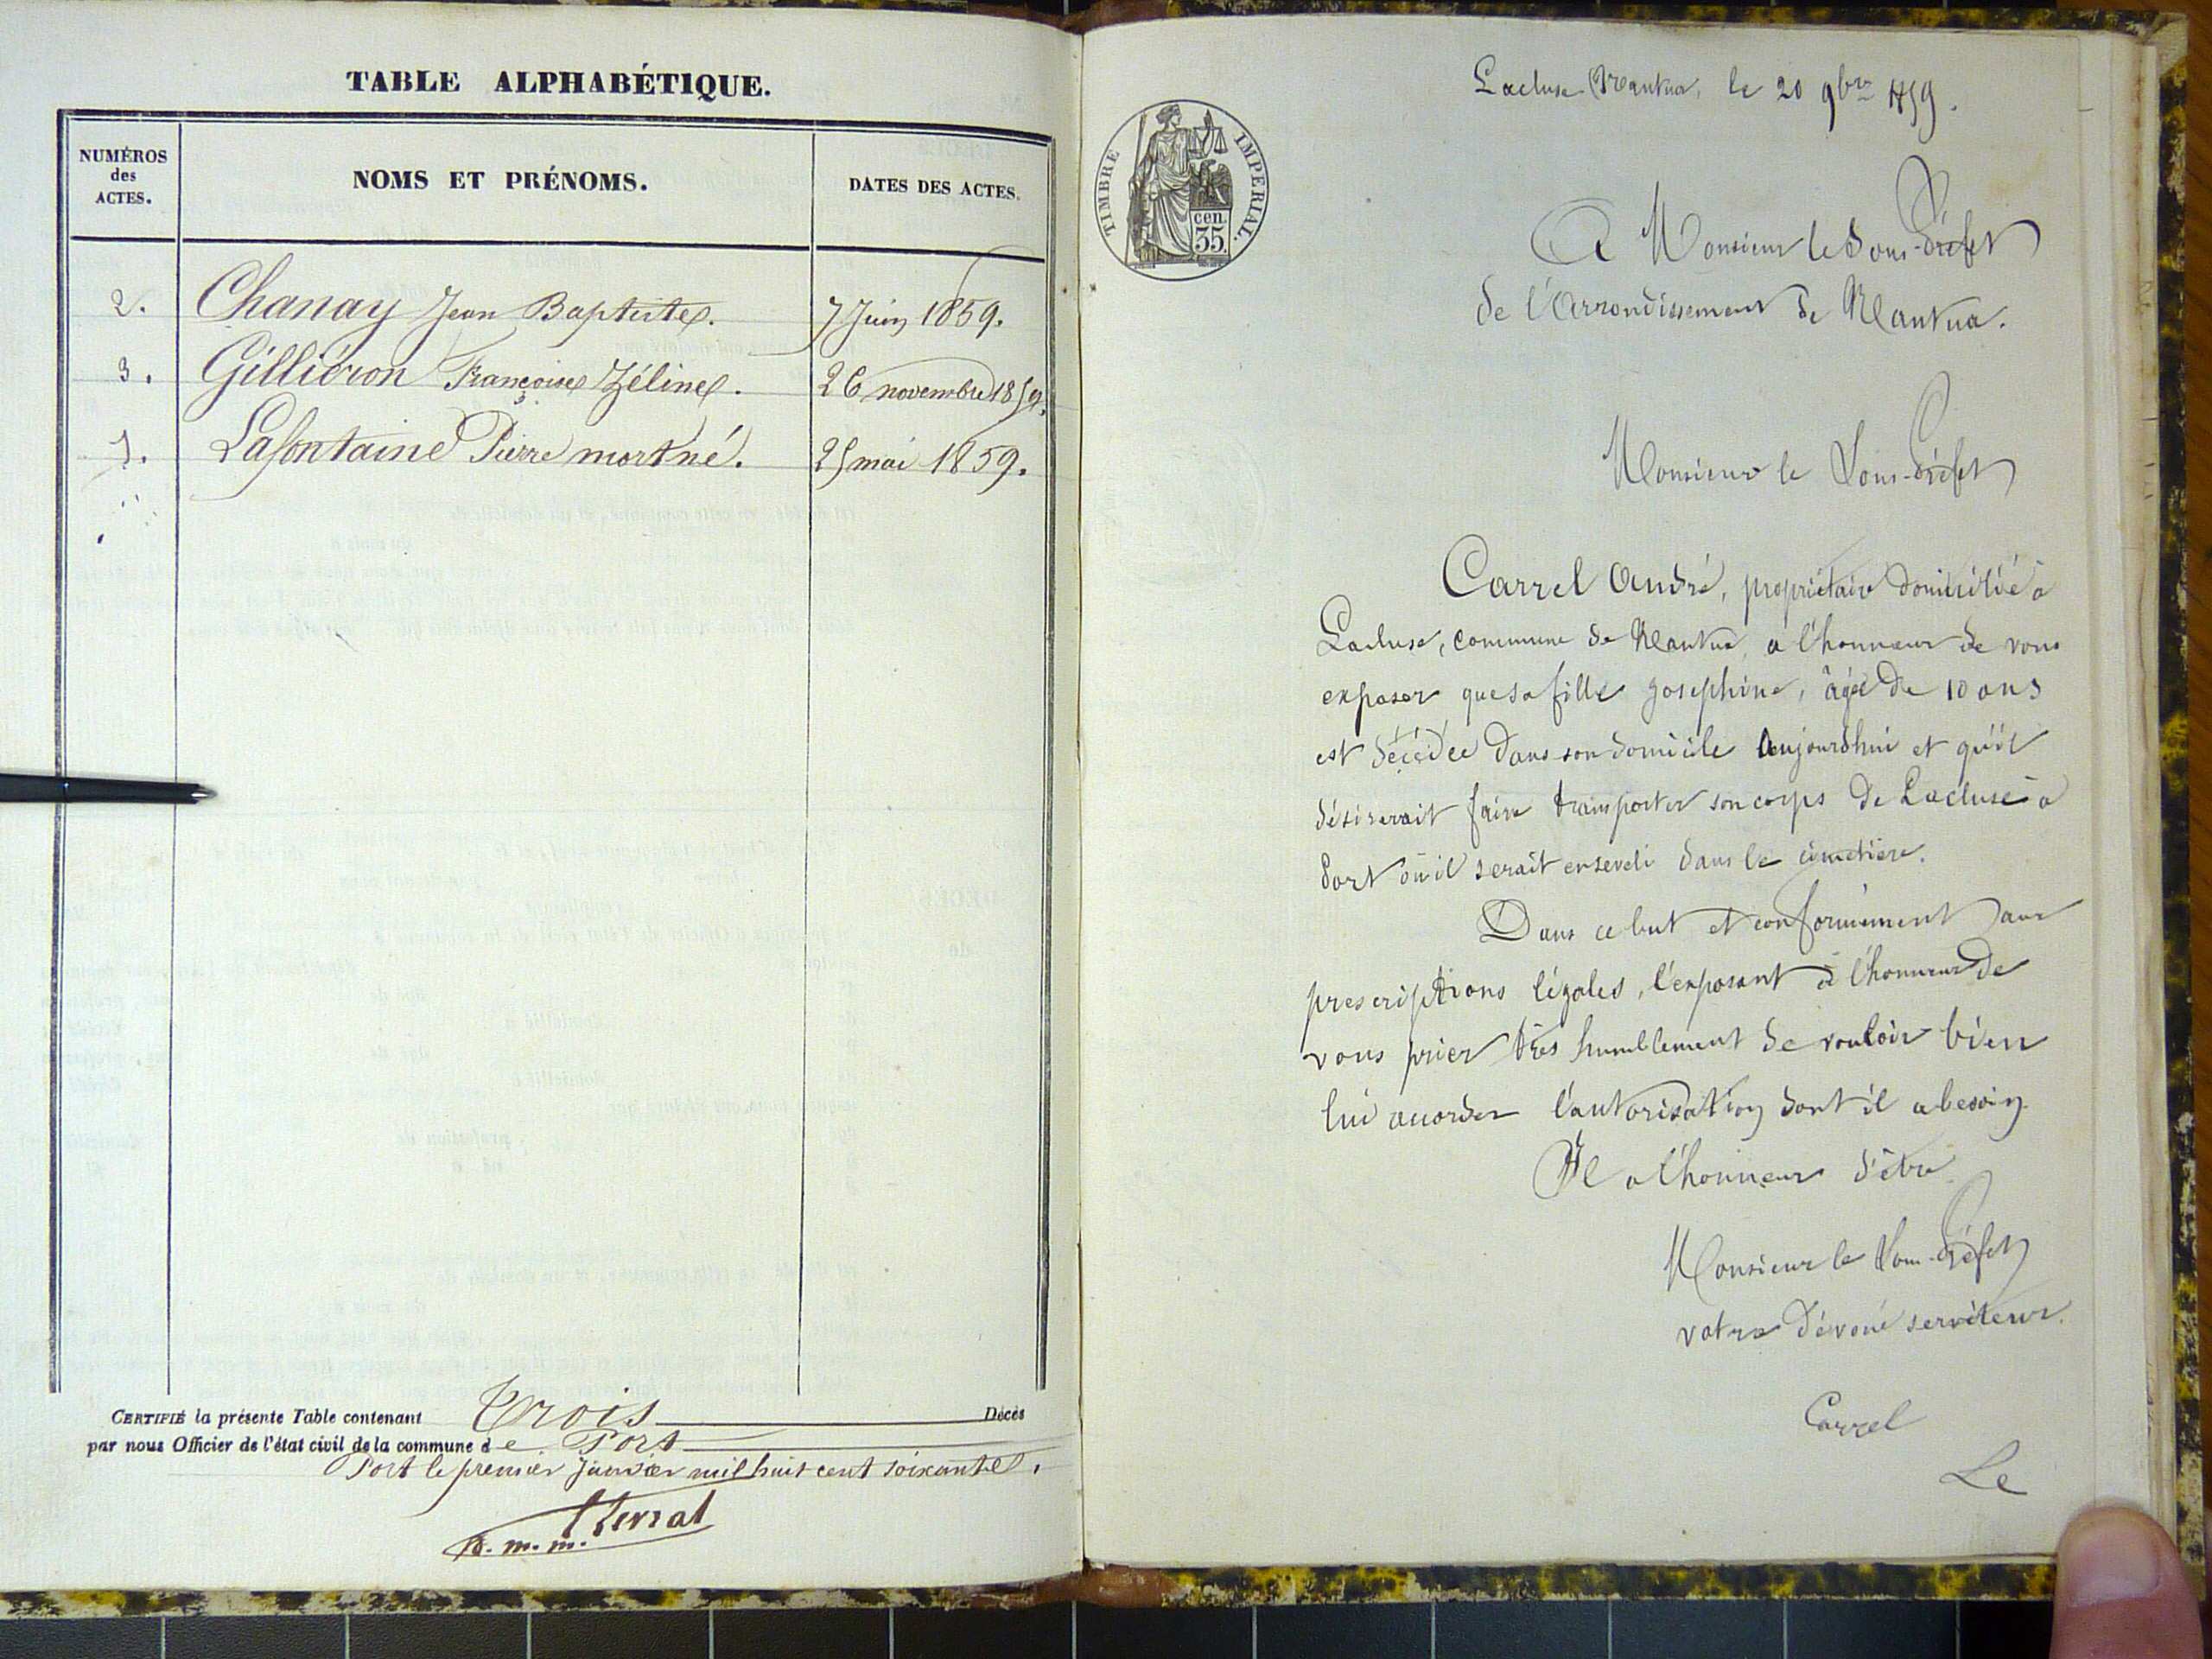 TABLE ALPHABÉTIQUE.
NUMÉROS
des
ACTES.
NOMS ET PRÉNOMS.
DATES DES ACTES.
2. Chanay Jean Baptiste. 7 Juin 1859.
3. Gilliéron Françoise Zéline. 26 novembre 1859.
1. Lafontaine Pierre mort né. 25 mai 1859.
CERTIFIÉ la présente Table contenant Trois Décès
par nous Officier de l'état civil de la commune de Port
Port le premier Janvier mil huit cent soixante.
D. m. m.
TIMBRE IMPERIAL.
cen.
35.
Lacluse (Nantua, le 20 9bre 1859.
A Monsieur le Sous-Préfet
de l'Arrondissement de Nantua.
Monsieur le Sous-Préfet
Carrel André, propriétaire domicilié à
Lacluse, commune de Nantua, a l'honneur de vous
exposer que sa fille Josephine, âgée de 10 ans
est décédée dans son domicile Aujourdhui et qu'il
désirerait faire transporter son corps de Lacluse à
Port où il serait enseveli dans le cimetière.
Dans ce but et conformément aux
prescriptions légales, l'exposant à l'honneur de
vous prier très humblement de vouloir bien
lui accorder l'autorisation dont il a besoin.
Il a l'honneur d'être
Monsieur le Sous-Préfet
votre dévoué serviteur.
Carrel
Le